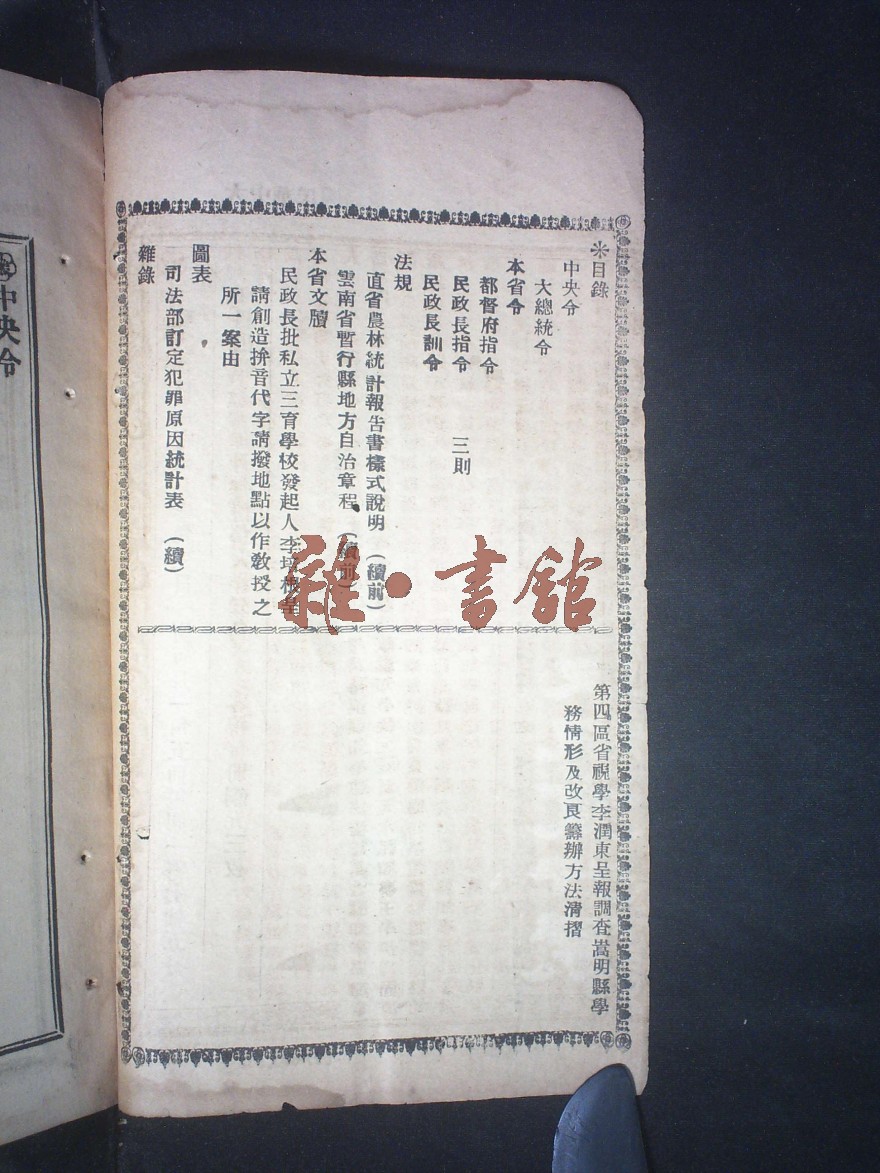 ※目錄
中央令
大總統令
本省令
都督府指令
民政長指令 三則
民政長訓令
法規
直省農林統計報告書樣式說明 (續前)
雲南省暫行縣地方自治章程 (續前)
本省文牘
民政長批私立三育學校發起人李培根呈
請創造拚音代字請撥地點以作敎授之
所一案由
圖表
司法部訂定犯罪原因統計表 (續)
雜錄
第四區省視學李潤東呈報調查嵩明縣學
務情形及改良籌辦方法清摺
中央令
雜·書館